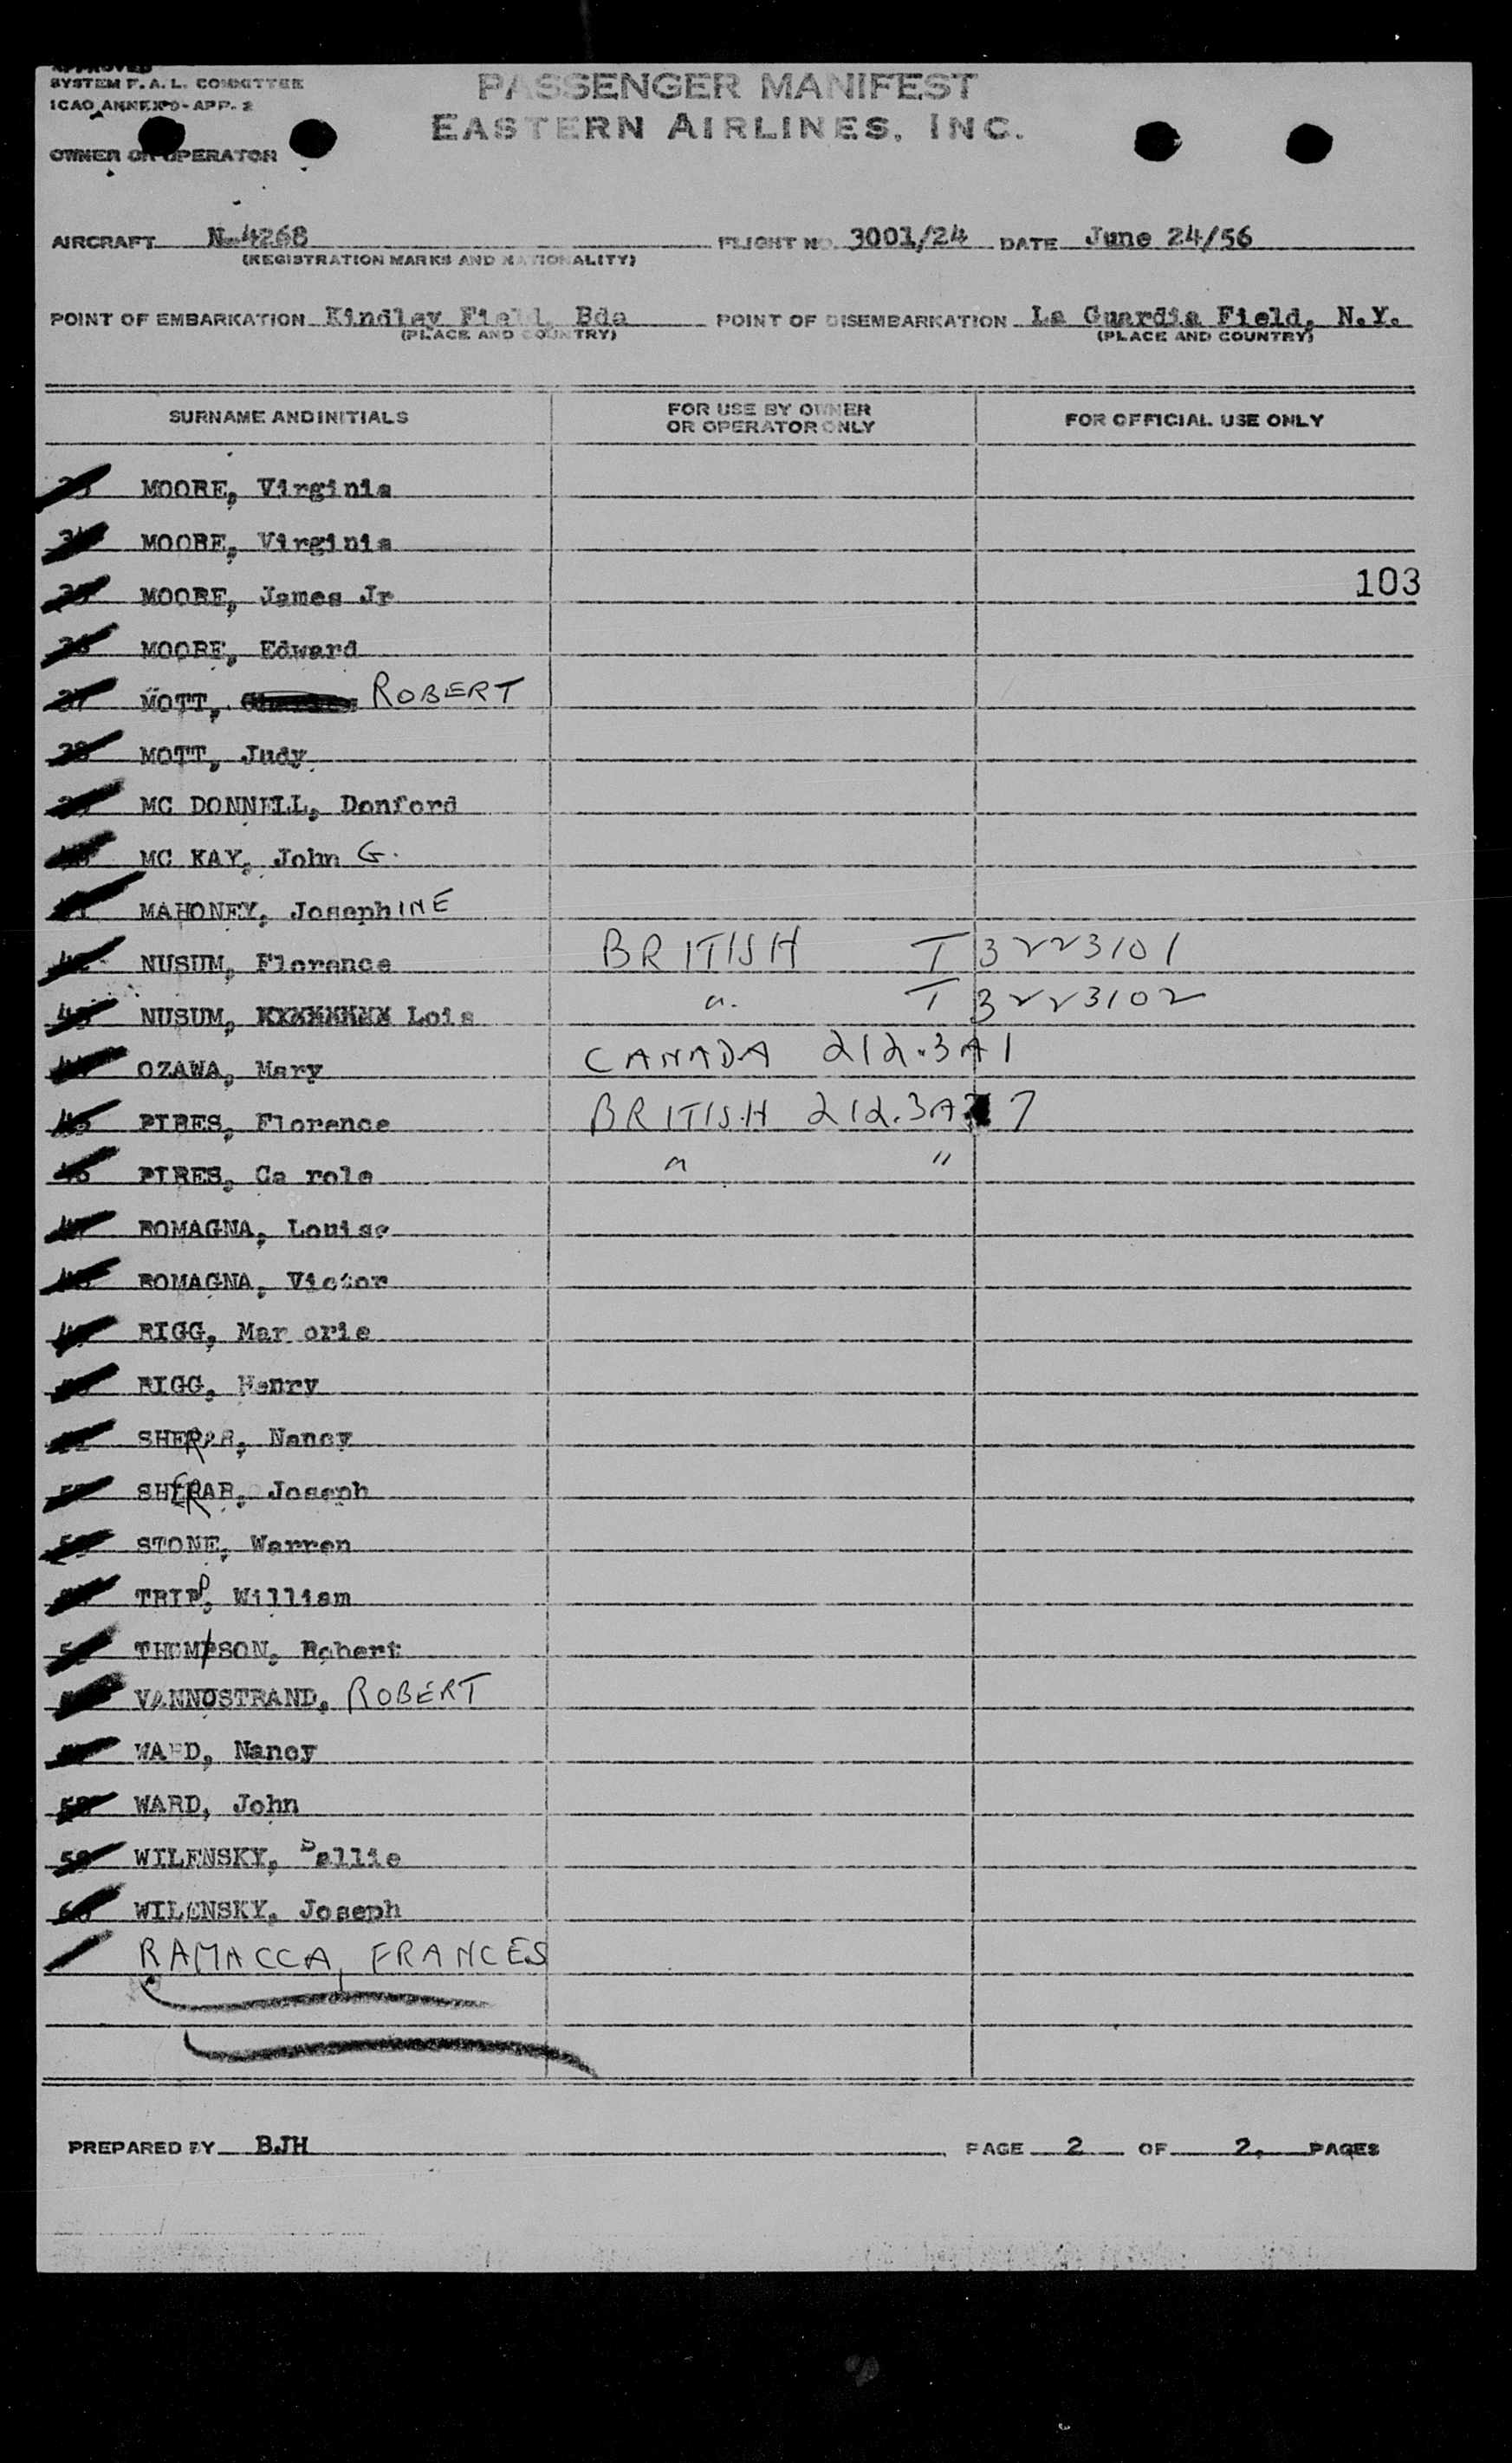 APPROVED
SYSTEM F. A. L. COMMITTEE
ICAO ANNEX 9 - APP. 2
PASSENGER MANIFEST
EASTERN AIRLINES, INC.
OWNER OR OPERATOR
AIRCRAFT N-4268 FLIGHT NO. 3001/24 DATE June 24/56
(REGISTRATION MARKS AND NATIONALITY)
POINT OF EMBARKATION Kindley Field, Bda POINT OF DISEMBARKATION La Guardia Field, N.Y.
(PLACE AND COUNTRY) (PLACE AND COUNTRY)
SURNAME AND INITIALS FOR USE BY OWNER OR OPERATOR ONLY FOR OFFICIAL USE ONLY
33 MOORE, Virginia
34 MOORE, Virginia
35 MOORE, James Jr 103
36 MOORE, Edward
37 MOTT, ROBERT
38 MOTT, Judy
39 MC DONNELL, Donford
40 MC KAY, John G.
41 MAHONEY, JosephINE
42 NUSUM, Florence BRITISH T 3223101
43 NUSUM, Lois " T 3223102
44 OZAWA, Mary CANADA 212.3A1
45 PIRES, Florence BRITISH 212.3A 7
46 PIRES, Ca role " "
47 ROMAGNA, Louise
48 ROMAGNA, Victor
49 RIGG, Mar orie
50 RIGG, Henry
51 SHERAR, Nancy
52 SHERAR, Joseph
53 STONE, Warren
54 TRIPP, William
55 THOMPSON, Robert
56 VANNOSTRAND, ROBERT
57 WARD, Nancy
58 WARD, John
59 WILENSKY, Sallie
60 WILENSKY, Joseph
RAMACCA, FRANCES
PREPARED BY BJH PAGE 2 OF 2. PAGES